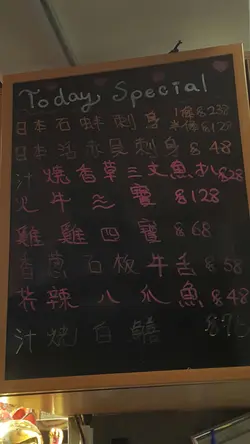 Today Special
日本石蚌刺身 1個 $238
半個 $128
日本活赤貝刺身 $48
汁燒香草三文魚扒 $28
火牛二寶 $128
雞雞四寶 $68
香蔥石板牛舌 $58
芥辣八爪魚 $48
汁燒白鱔 $7